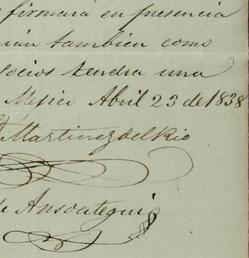 firmara en presencia
tambien como
socios tendra una
Mejico Abril 23 de 1838
Martinez del Rio
de Ansoategui